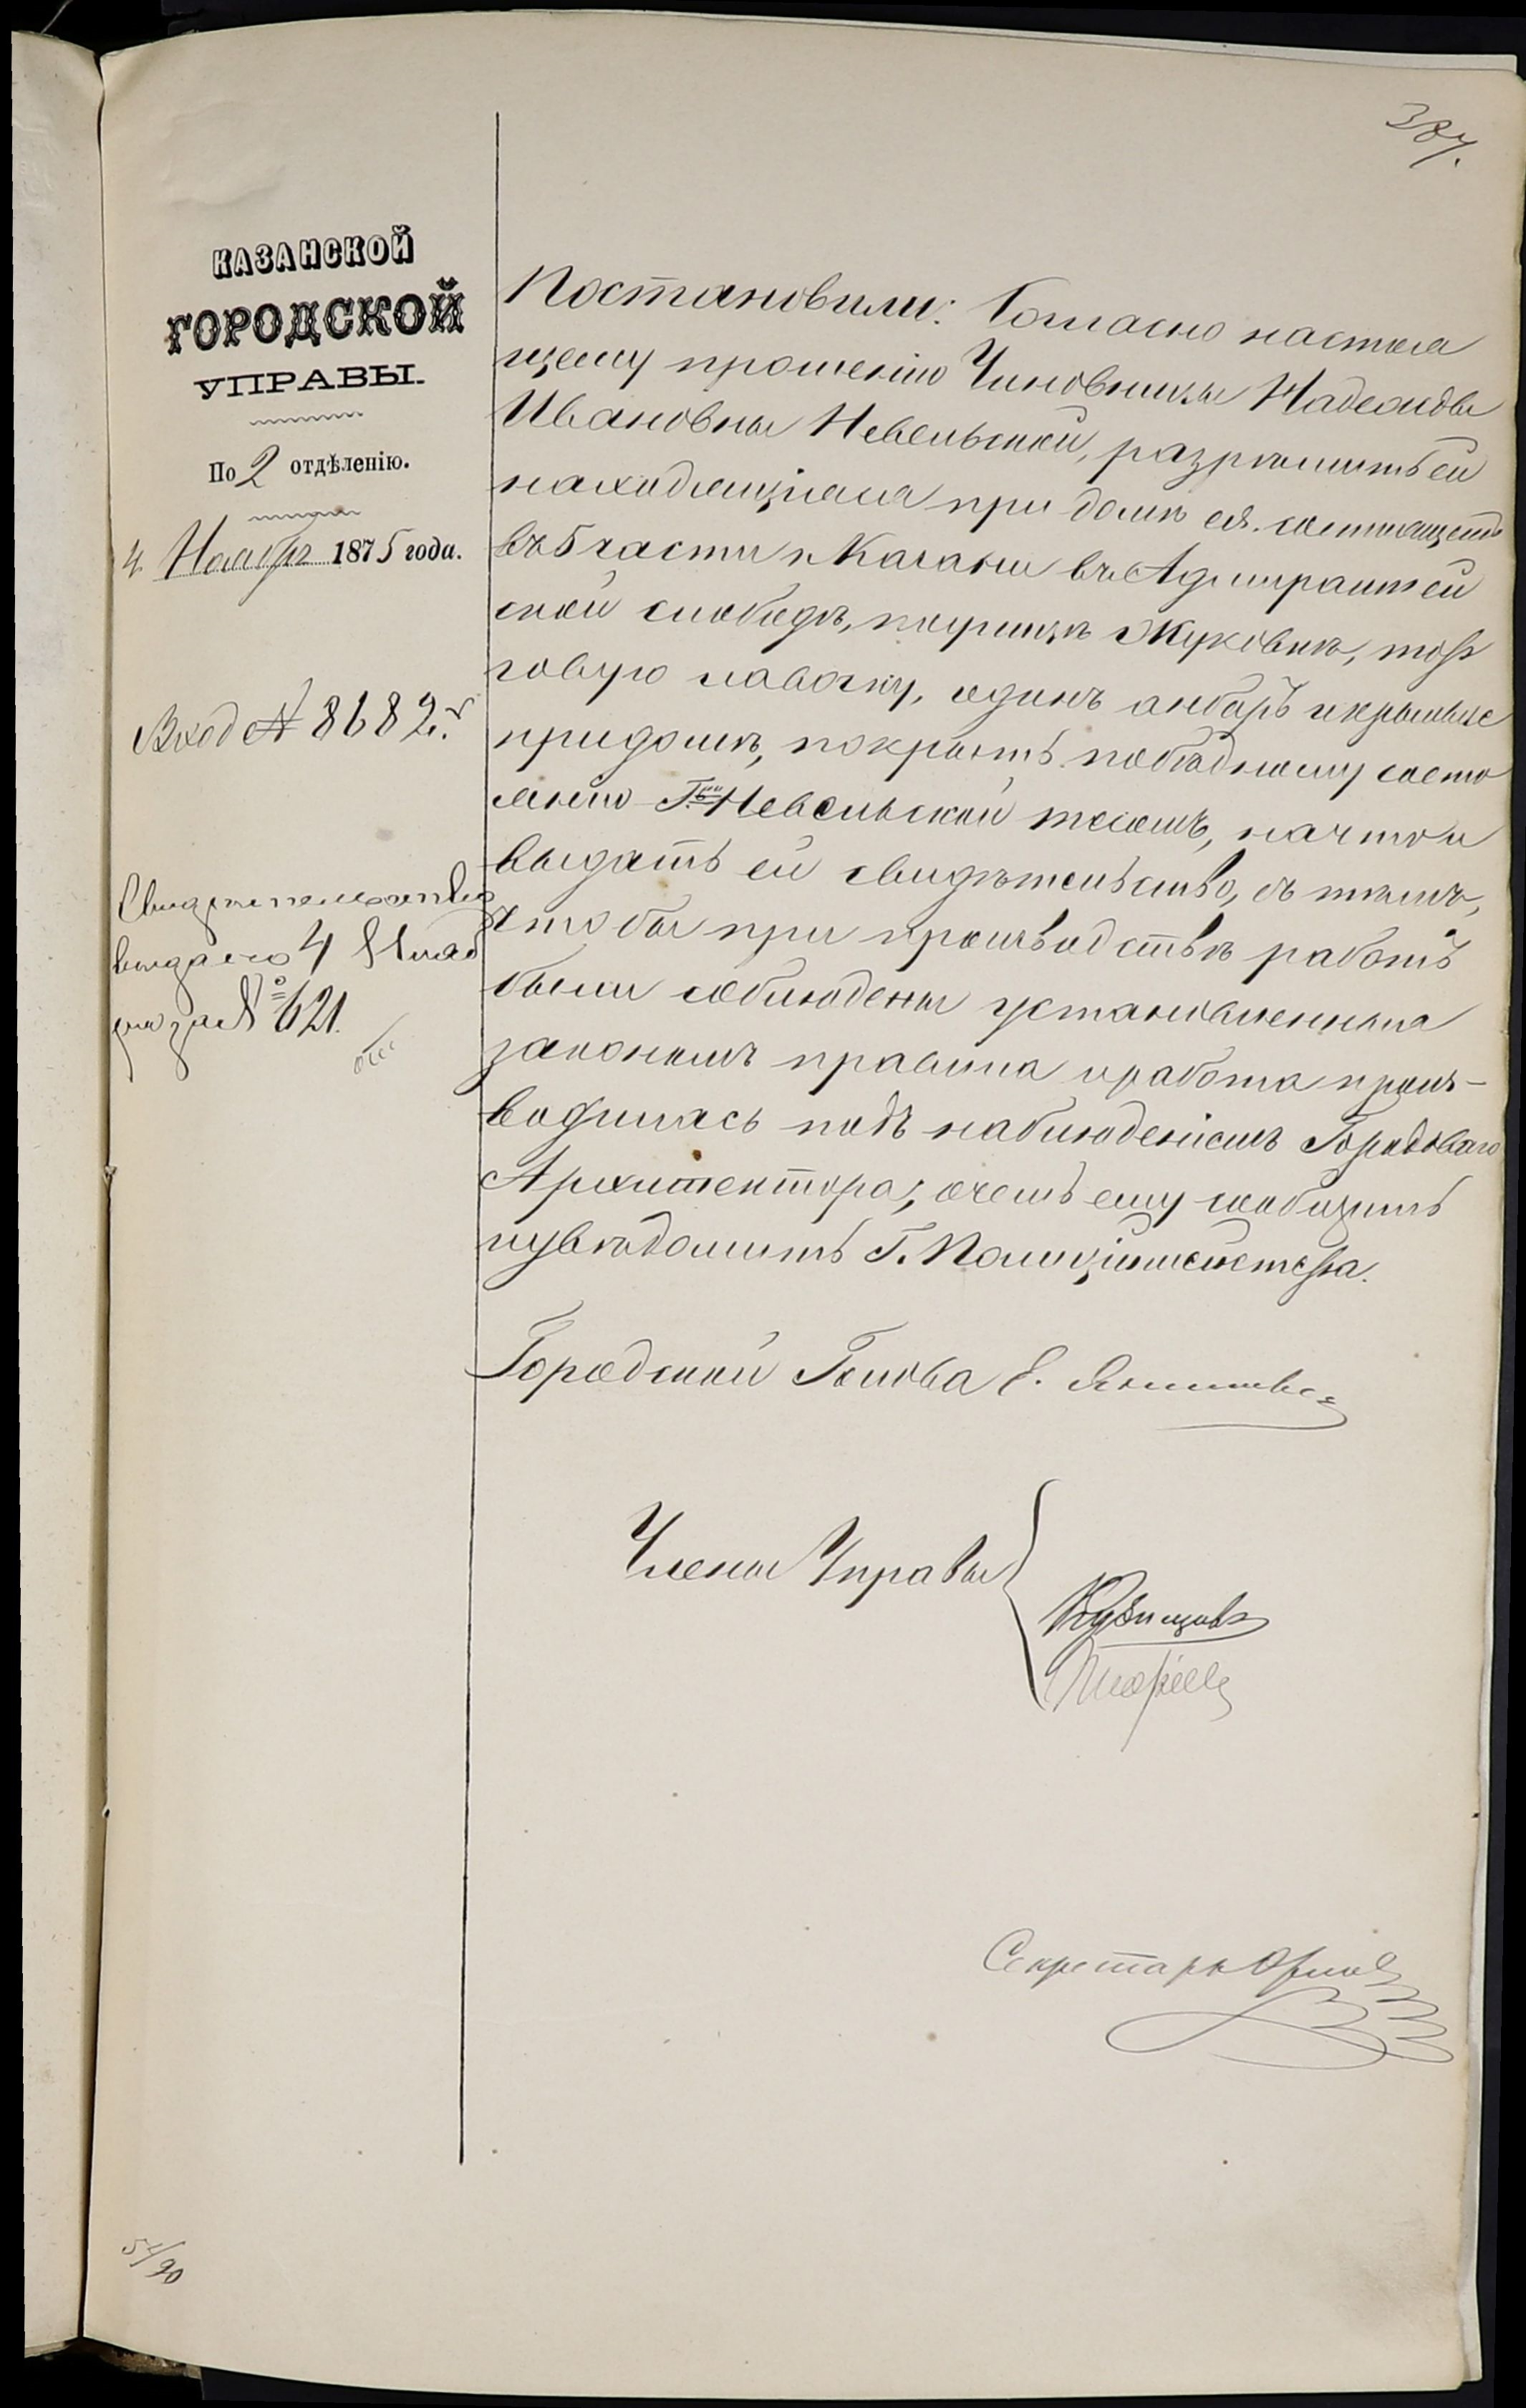 387.
КАЗАНСКОЙ
ГОРОДСКОЙ
УПРАВЫ.
По 2 отдѣленію.
4 Ноября 1875 года.
Вход № 8682.
Свидѣтельство
выдано 4 Нояб
ря за № 621.
Постановили: Согласно настоя
щему прошенію Чиновницы Надежды
Ивановны Невельской, разрѣшить ей
находящіяся при домѣ ея. состоящемъ
въ 5 части г. Казани въ Адмиралтей
ской слободѣ, по улицѣ Жуковкѣ, тор
говую лавочку, одинъ анбаръ и крыльце
при домѣ, покрыть по бѣдному состо
янію Г-жи Невельской тесомъ, на что и
выдать ей свидѣтельство, съ тѣмъ,
чтобы при производствѣ работъ
были соблюдены установленныя
закономъ правила и работа произ-
водилась подъ наблюденіемъ Городоваго
Архитектора, о чемъ ему сообщить
и увѣдомить Г. Полиціймейстера.
Городской Голова Е. Янишевс
Члены Управы
Секретарь Орлов
51/90